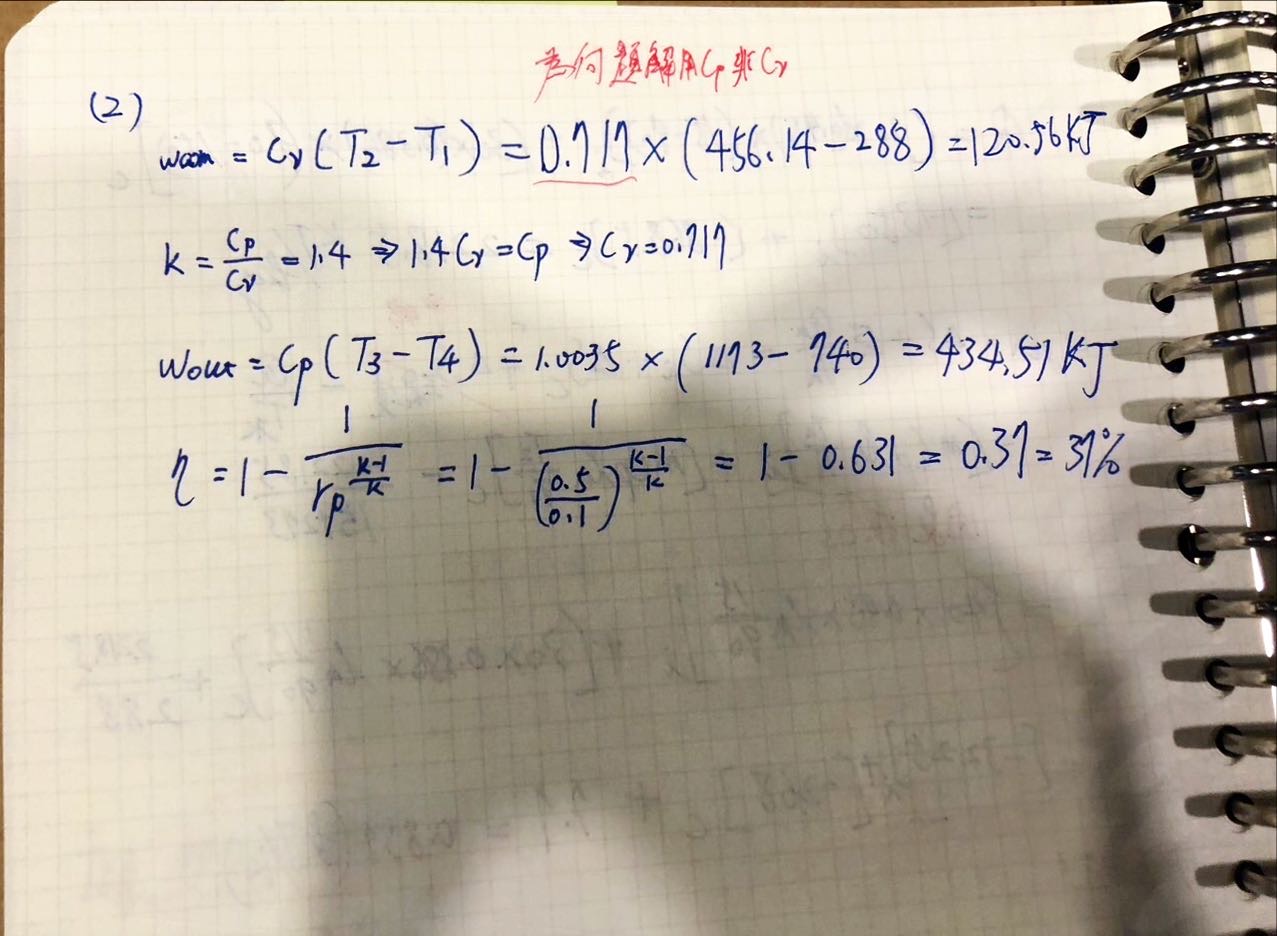 為何題解用Cp非Cv
(2)
Wcom = Cv(T2-T1) = 0.717×(456.14-288)=120.56KJ
k = Cp/Cv = 1.4 ⇒ 1.4Cv=Cp ⇒ Cv=0.717
Wout = Cp(T3-T4) = 1.0035 × (1173-740) = 434.51 KJ
η = 1 - 1/rp^((k-1)/k) = 1 - 1/(0.5/0.1)^((k-1)/k) = 1 - 0.631 = 0.37 = 37%